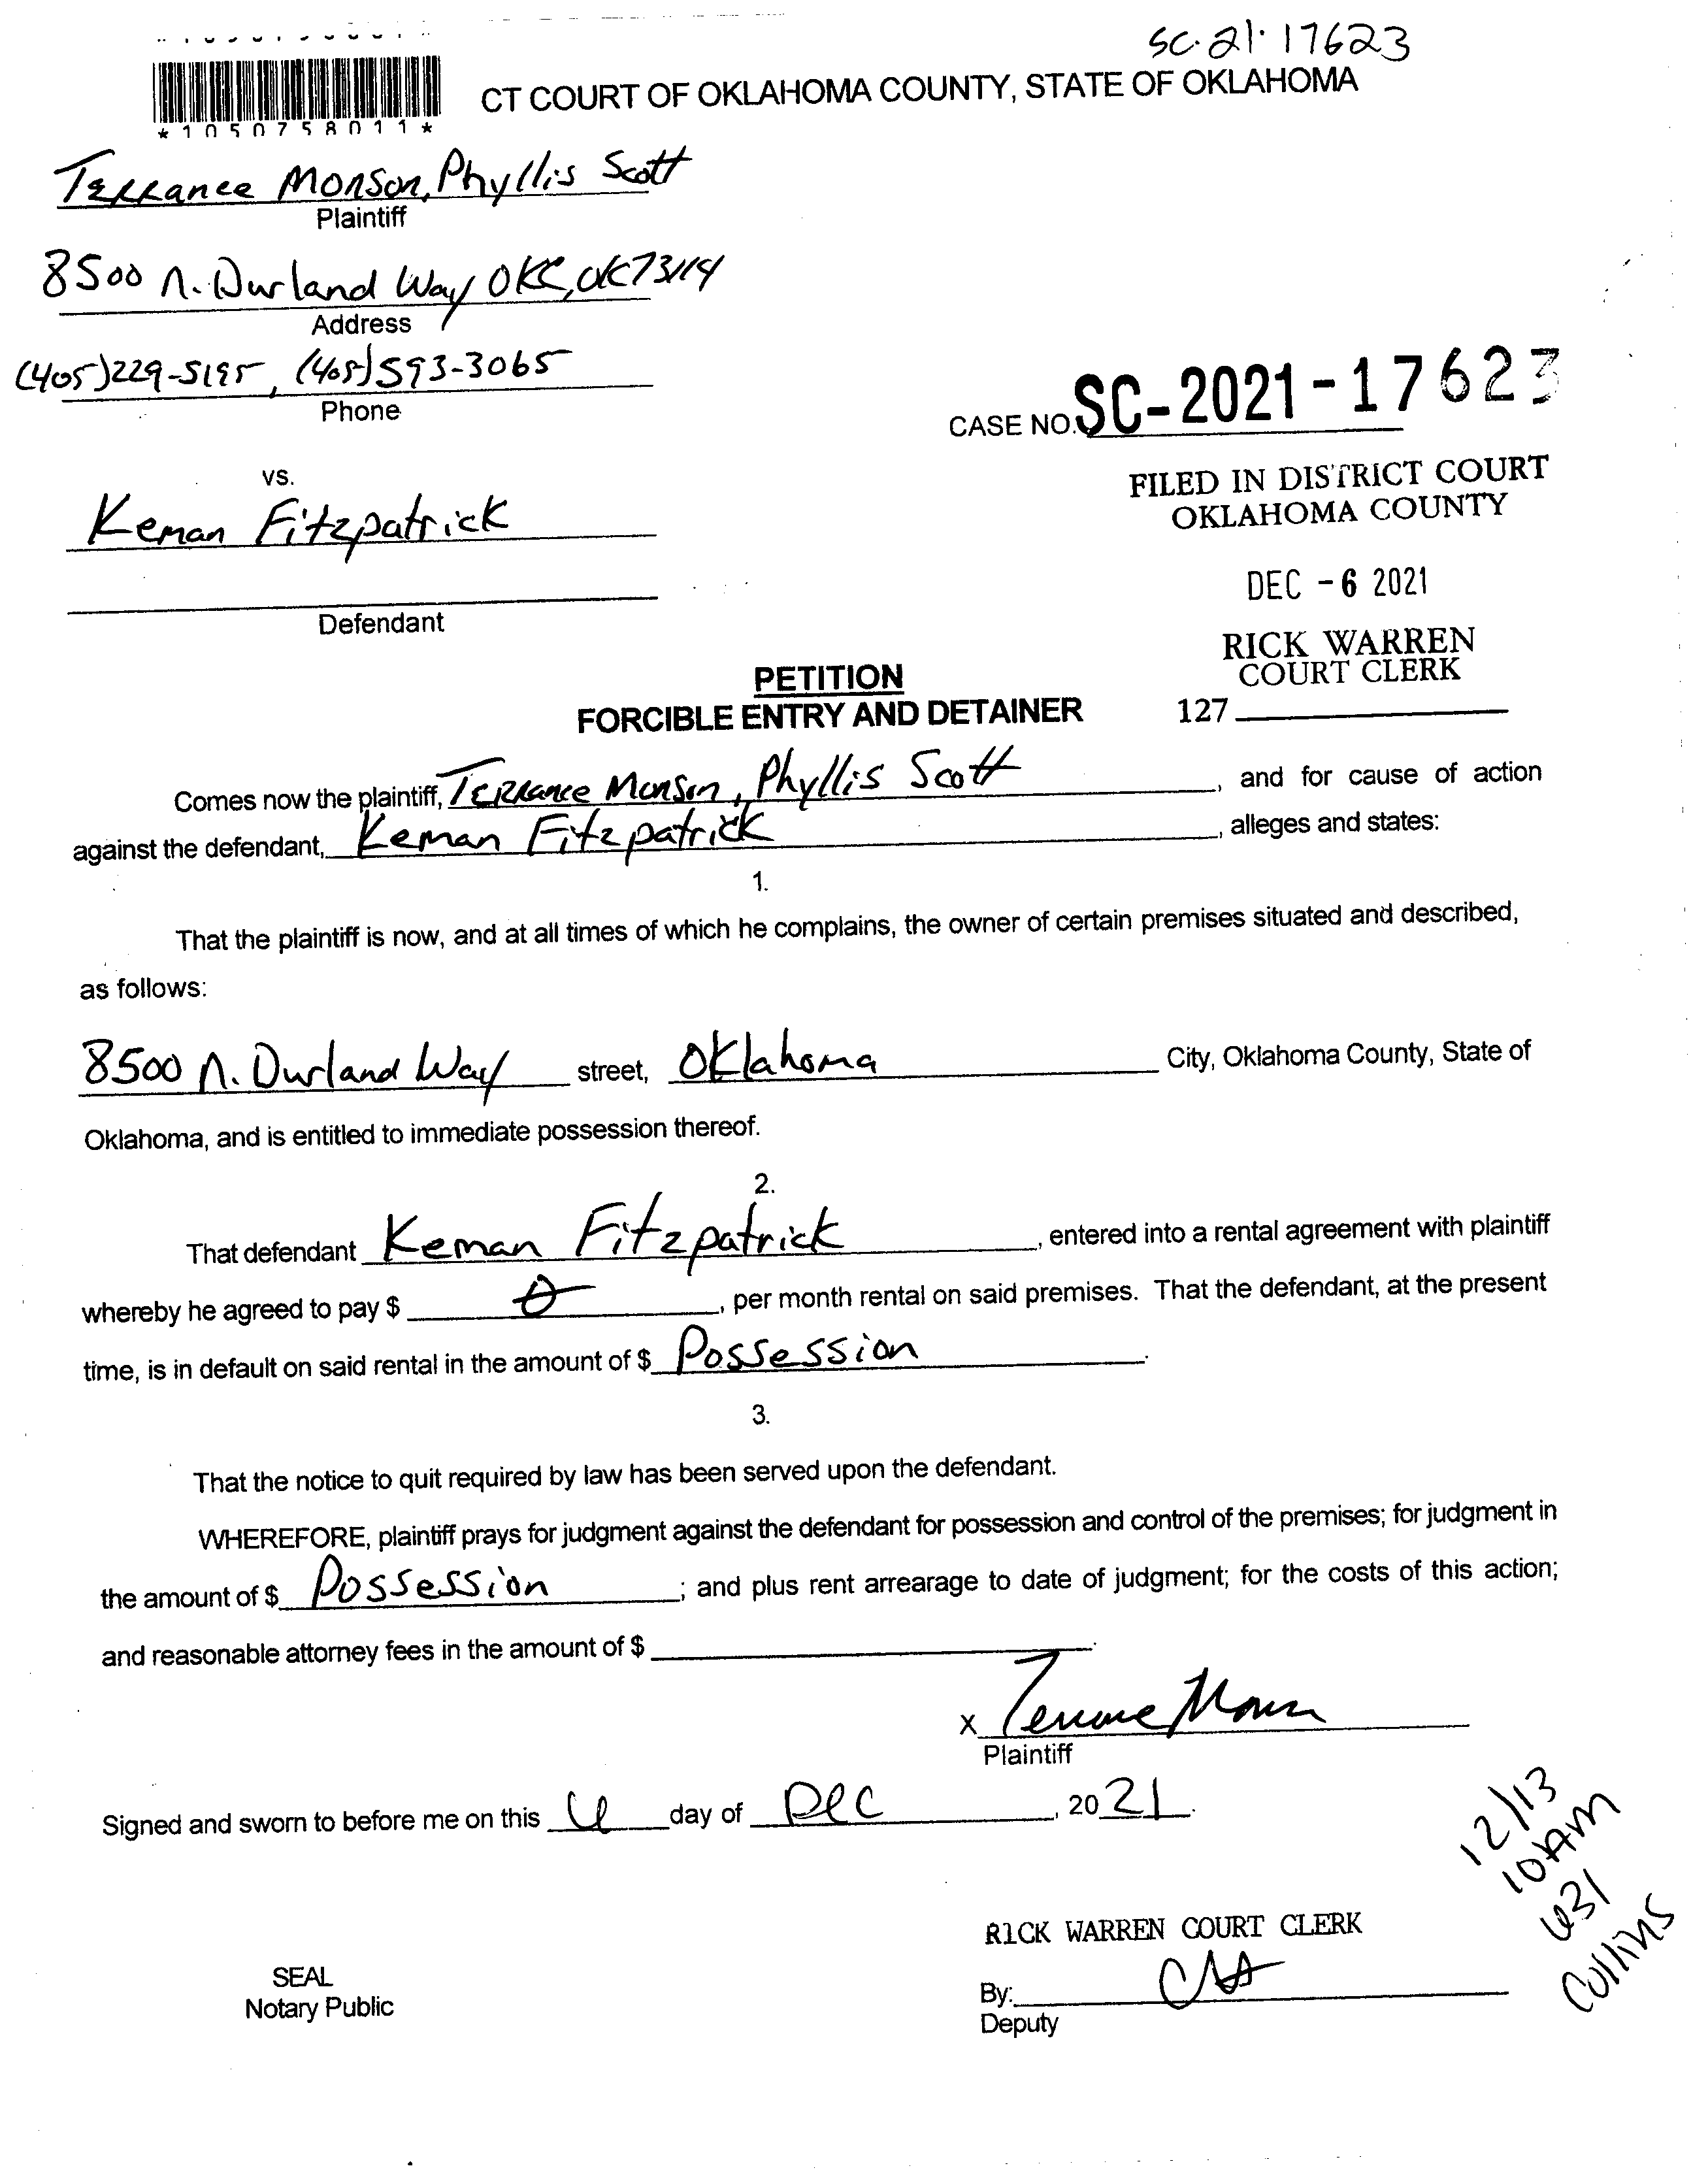 SC-21-17623
*1050758011*
CT COURT OF OKLAHOMA COUNTY, STATE OF OKLAHOMA
Terrance Monson, Phyllis Scott
Plaintiff
8500 N. Durland Way OKC, OK 73114
Address
(405)229-5195, (405)593-3065
Phone
CASE NO. SC-2021-17623
vs.
FILED IN DISTRICT COURT
OKLAHOMA COUNTY
Keman Fitzpatrick
DEC -6 2021
Defendant
RICK WARREN
COURT CLERK
127
PETITION
FORCIBLE ENTRY AND DETAINER
Comes now the plaintiff, Terrance Monson, Phyllis Scott, and for cause of action
against the defendant, Keman Fitzpatrick, alleges and states:
1.
That the plaintiff is now, and at all times of which he complains, the owner of certain premises situated and described,
as follows:
8500 N. Durland Way street, Oklahoma City, Oklahoma County, State of
Oklahoma, and is entitled to immediate possession thereof.
2.
That defendant Keman Fitzpatrick, entered into a rental agreement with plaintiff
whereby he agreed to pay $ 0, per month rental on said premises. That the defendant, at the present
time, is in default on said rental in the amount of $ Possession.
3.
That the notice to quit required by law has been served upon the defendant.
WHEREFORE, plaintiff prays for judgment against the defendant for possession and control of the premises; for judgment in
the amount of $ Possession; and plus rent arrearage to date of judgment; for the costs of this action;
and reasonable attorney fees in the amount of $
x Terrance Monson
Plaintiff
Signed and sworn to before me on this 6 day of Dec, 2021.
12/13
10AM
631
Collins
RICK WARREN COURT CLERK
SEAL
Notary Public
By:
Deputy